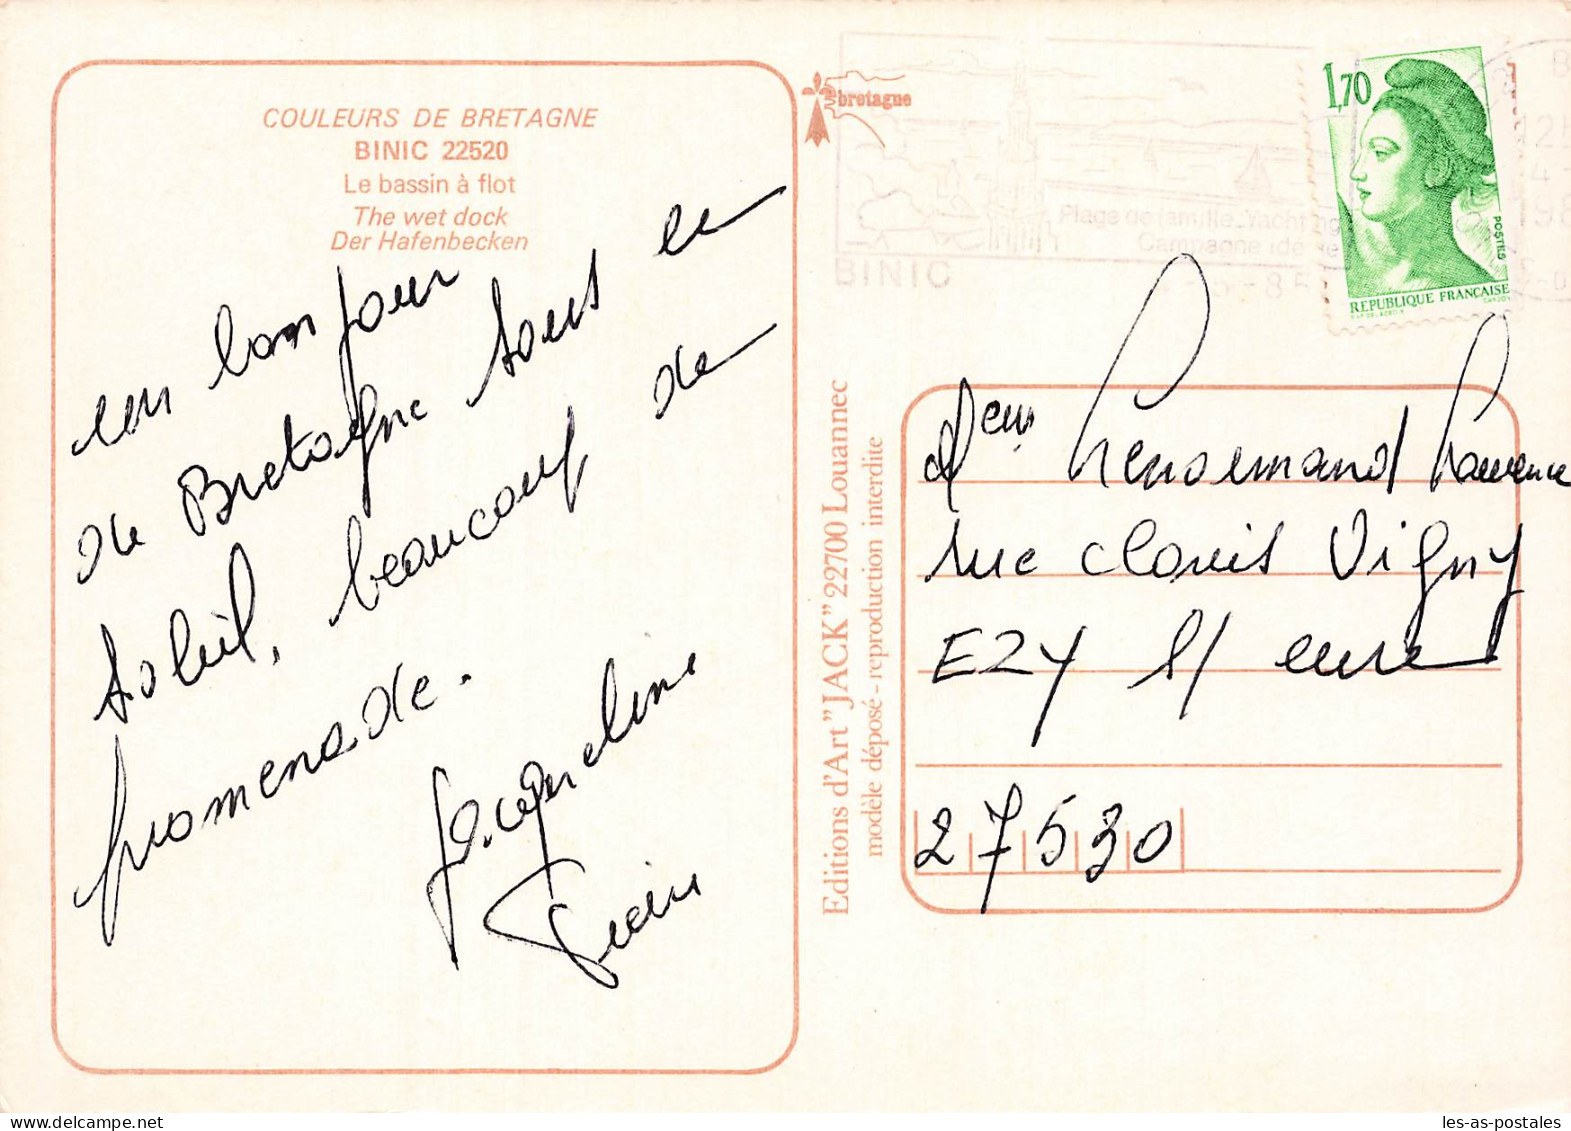 COULEURS DE BRETAGNE
BINIC 22520
Le bassin à flot
The wet dock
Der Hafenbecken
un bonjour
de Bretagne sous le
soleil, beaucoup de
promenade.
Jacqueline
bretagne
Plage de famille Yachting
Campagne
BINIC
1,70
POSTES
REPUBLIQUE FRANÇAISE
Editions d'Art "JACK" 22700 Louannec
modèle déposé - reproduction interdite
Laurence
rue Clovis Vigny
EZY S/ eure
27530
les-as-postales